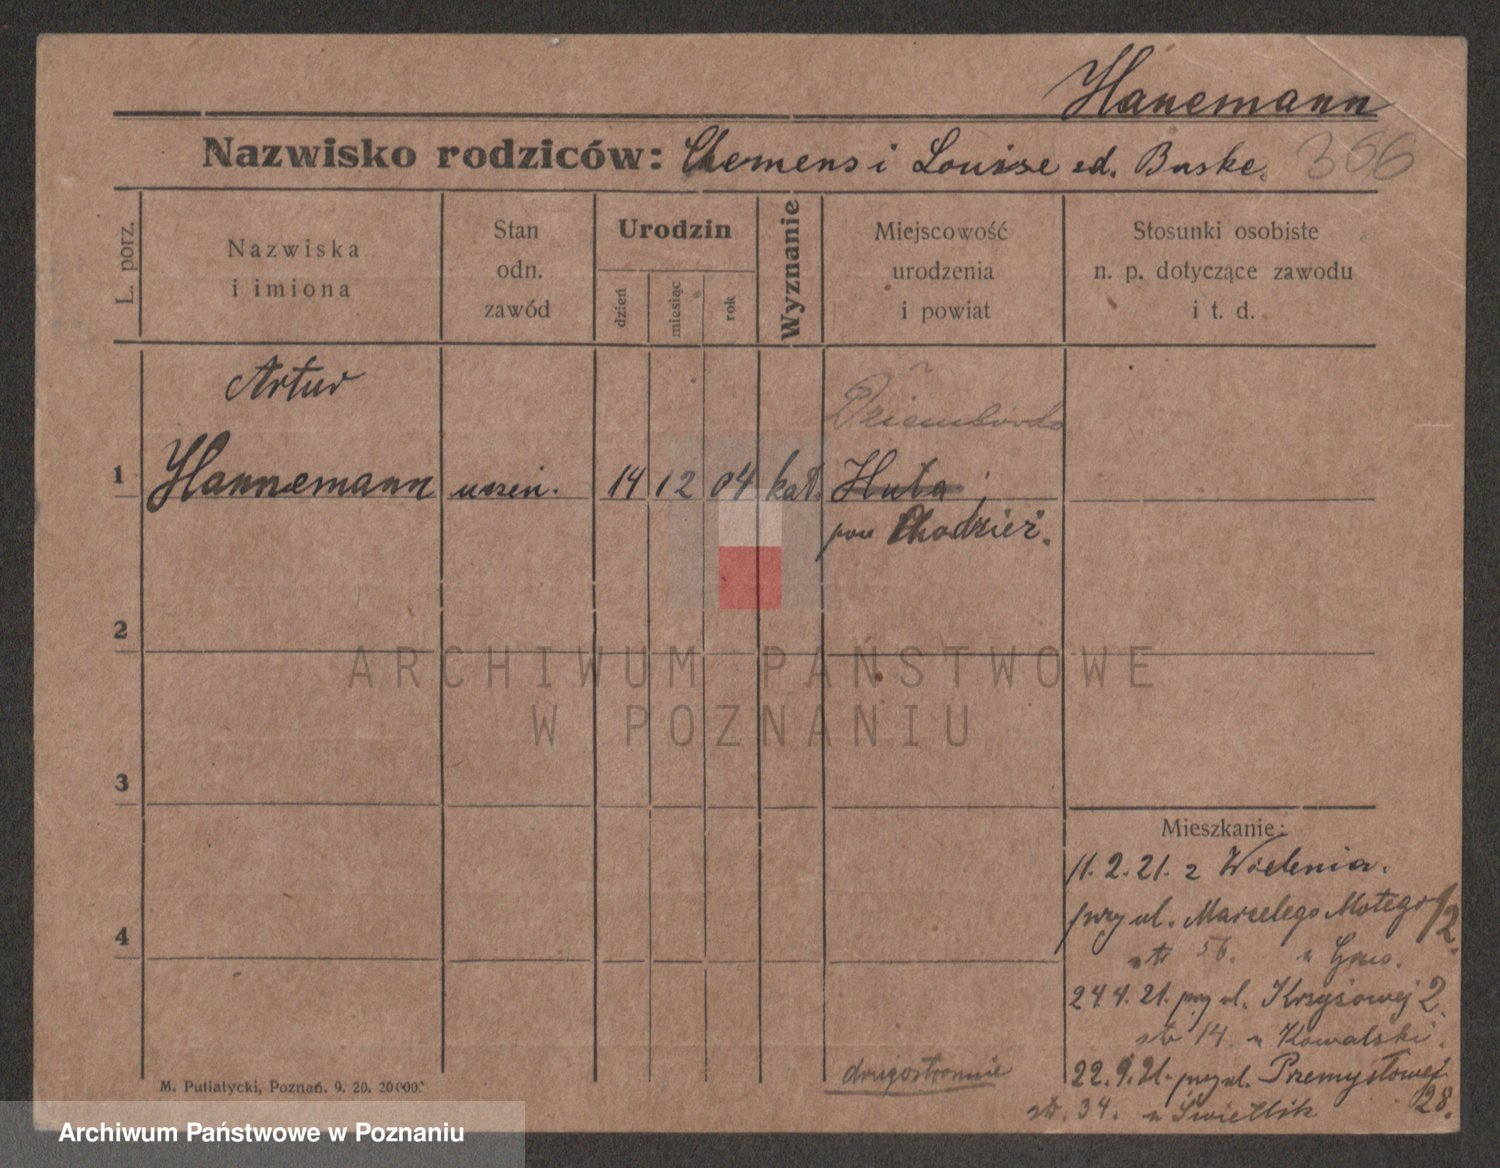 Hanemann
Nazwisko rodziców: Clemens i Louise zd. Buske. 366
L. porz.
Nazwiska
i imiona
Stan
odn.
zawód
Urodzin
dzień
miesiąc
rok
Wyznanie
Miejscowość
urodzenia
i powiat
Stosunki osobiste
n. p. dotyczące zawodu
i t. d.
Artur
Dziembówko
1 Hannemann uczeń. 14 12 04 kat. Huta,
pow Chodzież.
2
ARCHIWUM PAŃSTWOWE
W POZNANIU
3
Mieszkanie:
11. 2. 21. z Wielenia.
przy ul. Marcelego Motego 12.
str 56. u
4
24. 4. 21. przy ul. Krzyżowej 2.
str 14. u Kowalski.
drugostronnie
22. 9. 21. przy ul. Przemysłowej
28.
str. 34. u Świetlik
M. Putiatycki, Poznań. 9. 20. 20000.
Archiwum Państwowe w Poznaniu